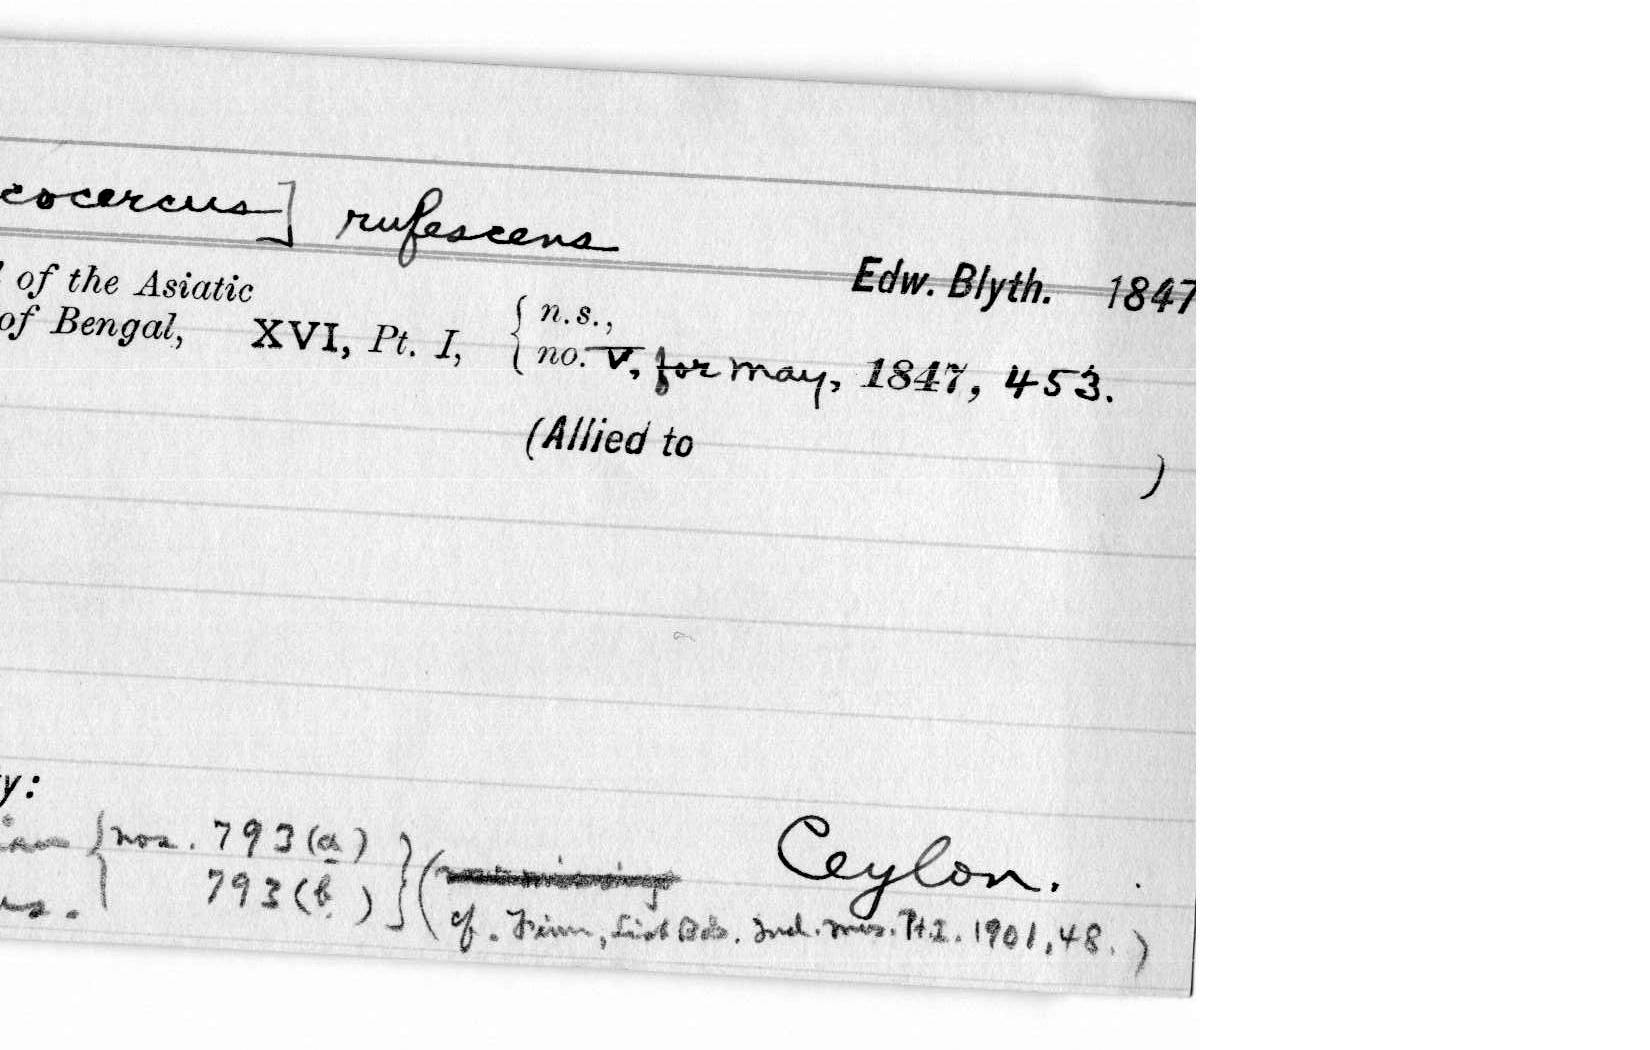 cocercus] rufescens
Edw. Blyth. 1847
of the Asiatic
of Bengal, XVI, Pt. I, { n.s., no. V, for May, 1847, 453.
(Allied to )
y:
Ceylon.
{ nos. 793(a)
793(b) } (
cf. Finn, List Bds. Ind. Mus. Pt. I. 1901, 48. )